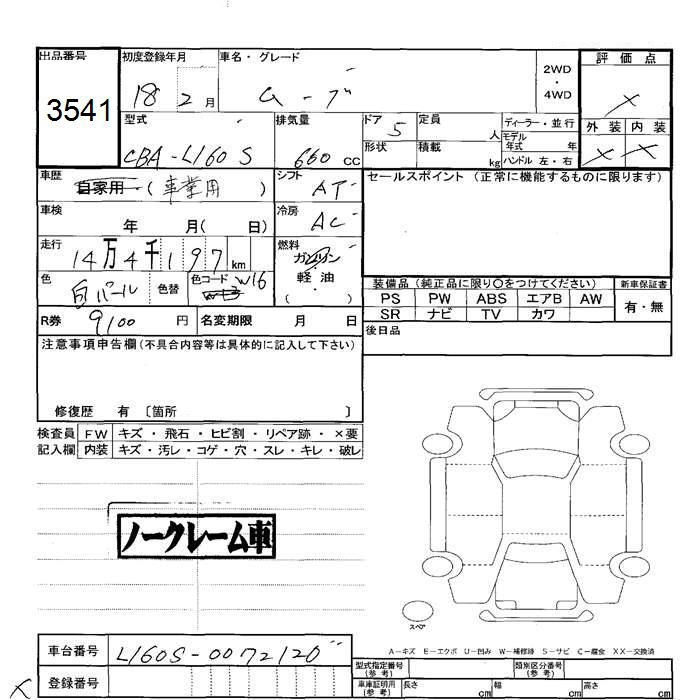 出品番号 初度登録年月 車名・グレード 2WD・4WD 評価点
3541 18 2月 ムーブ X
型式 排気量 ドア 定員 ディーラー・並行 外装 内装
CBA-L160S 660 CC 5 人 モデル年式 年 X X
形状 積載 kg ハンドル 左・右
車歴 自家用 (事業用) シフト AT セールスポイント (正常に機能するものに限ります)
車検 年 月( 日) 冷房 AC
走行 14万4千197km 燃料 ガソリン 軽・油 ( )
色 白パール 色替 色コード W16
装備品 (純正品に限り〇をつけてください) 新車保証書
PS PW ABS エアB AW 有・無
SR ナビ TV カワ
R券 9100 円 名変期限 月 日
後日品
注意事項申告欄 (不具合内容等は具体的に記入して下さい)
修復歴 有 〔箇所 〕
検査員 FW キズ・飛石・ヒビ割・リペア跡・×要
記入欄 内装 キズ・汚レ・コゲ・穴・スレ・キレ・破レ
ノークレーム車
スペア
A－キズ E－エクボ U－凹み W－補修跡 S－サビ C－腐食 XX－交換済
車台番号 L160S-0072120
登録番号
型式指定番号(参考) 類別区分番号(参考)
車庫証明用(参考) 長さ cm 幅 cm 高さ cm
X